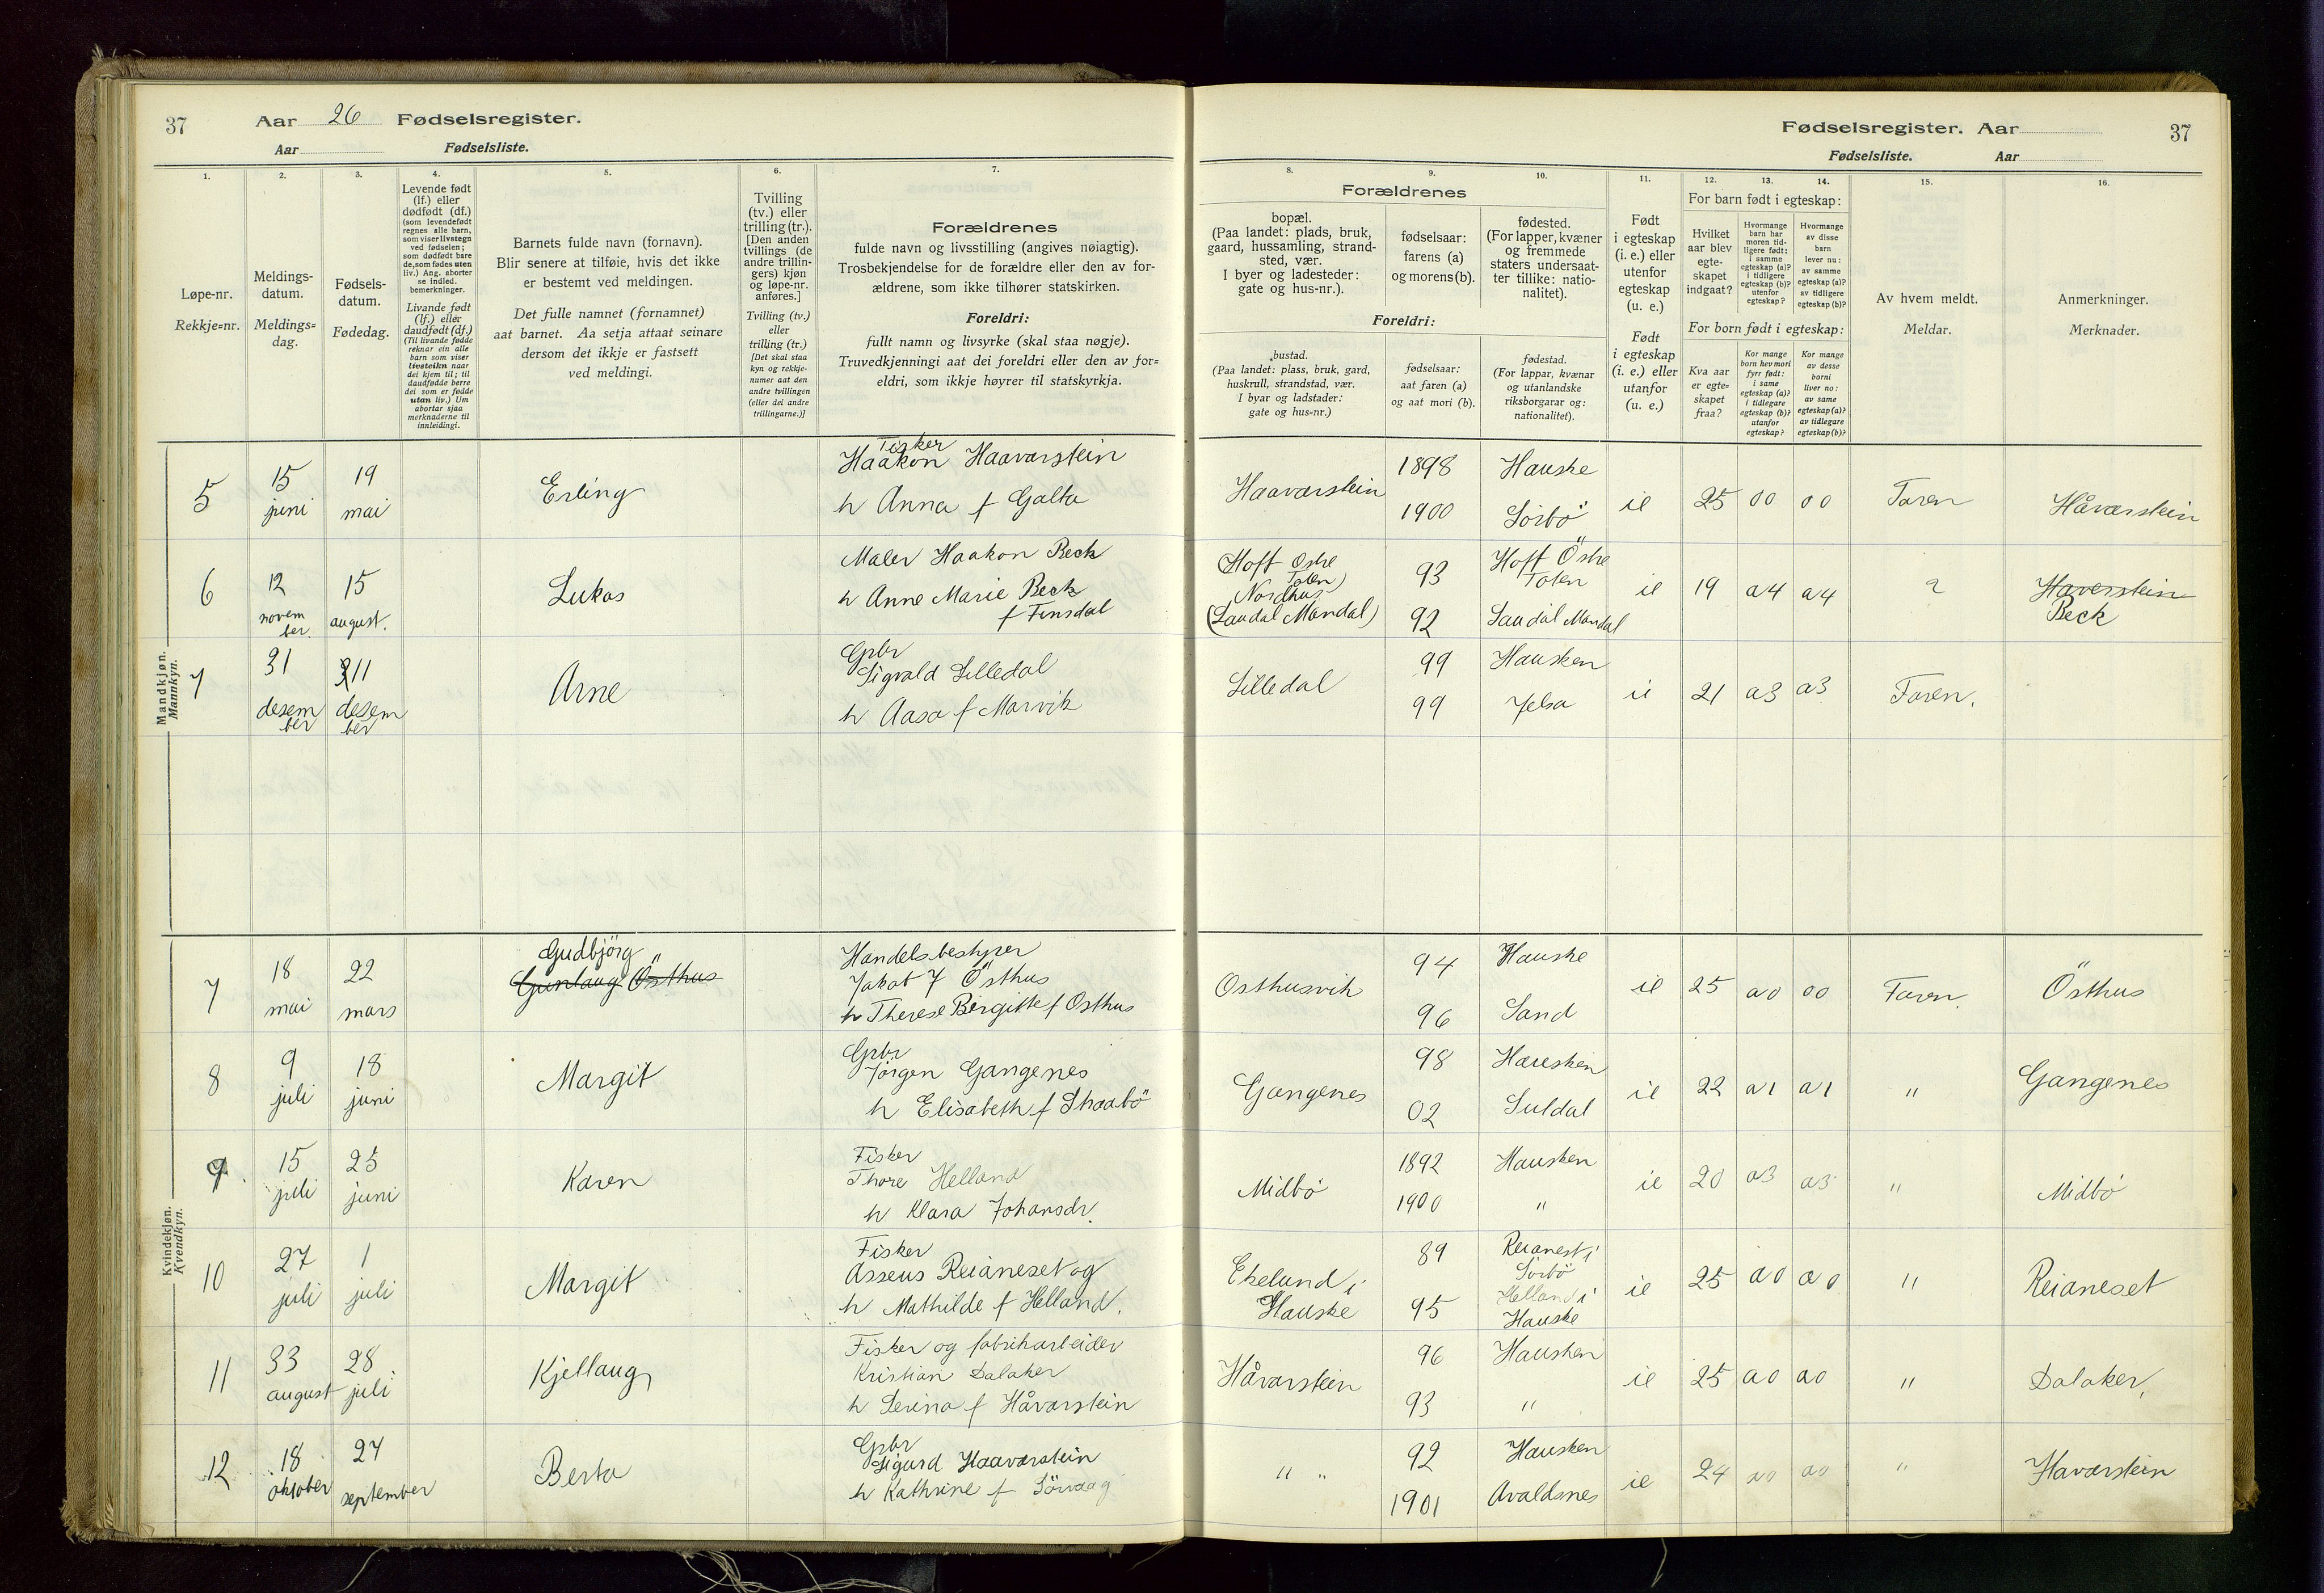 37 Aar 26 Fødselsregister.
Aar Fødselsliste.
Fødselsregister. Aar 37
Fødselsliste. Aar
1.
Løpe-nr.
Rekkje=nr.
2.
Meldings-
datum.
Meldings=
dag.
3.
Fødsels-
datum.
Fødedag.
4.
Levende født
(lf.) eller
dødfødt (df.)
(som levendefødt
regnes alle barn,
som viser livstegn
ved fødselen;
som dødfødt bare
de, som fødes uten
liv.) Ang. aborter
se indled.
bemerkninger.
Livande født
(lf.) eller
daudfødt (df.)
(Til livande fødde
reknar ein alle
barn som viser
livsteikn naar
dei kjem til; til
daudfødde berre
dei som er fødde
utan liv.) Um
abortar sjaa
merknaderne til
innleidingi.
5.
Barnets fulde navn (fornavn).
Blir senere at tilføie, hvis det ikke
er bestemt ved meldingen.
Det fulle namnet (fornamnet)
aat barnet. Aa setja attaat seinare
dersom det ikkje er fastsett
ved meldingi.
6.
Tvilling
(tv.) eller
trilling (tr.).
[Den anden
tvillings (de
andre trillin-
gers) kjøn
og løpe-nr.
anføres.]
Tvilling (tv.)
eller
trilling (tr.)
[Det skal staa
kyn og rekkje-
numer aat den
andre tvillingen
(eller dei andre
trillingarne.)]
7.
Forældrenes
fulde navn og livsstilling (angives nøiagtig).
Trosbekjendelse for de forældre eller den av for-
ældrene, som ikke tilhører statskirken.
Foreldri:
fullt namn og livsyrke (skal staa nøgje).
Truvedkjenningi aat dei foreldri eller den av for=
eldri, som ikkje høyrer til statskyrkja.
Forældrenes
8.
bopæl.
(Paa landet: plads, bruk,
gaard, hussamling, strand-
sted, vær.
I byer og ladesteder:
gate og hus-nr.).
9.
fødselsaar:
farens (a)
og morens (b).
10.
fødested.
(For lapper, kvæner
og fremmede
staters undersaat-
ter tillike: natio-
nalitet).
Foreldri:
bustad.
(Paa landet: plass, bruk, gard,
huskrull, strandstad, vær.
I byar og ladstader:
gate og hus=nr.)
fødselsaar:
aat faren (a)
og aat mori (b).
fødestad.
(For lappar, kvænar
og utanlandske
riksborgarar og:
nationalitet).
11.
Født
i egteskap
(i. e.) eller
utenfor
egteskap
(u. e.)
Født
i egteskap
(i. e.) eller
utanfor
(u. e.)
For barn født i egteskap:
12.
Hvilket
aar blev
egte-
skapet
indgaat?
13.
Hvormange
barn har
moren tid-
ligere født:
i samme
egteskap (a)?
i tidligere
egteskap (b)?
utenfor
egteskap?
14.
Hvormange
av disse
barn
lever nu:
av samme
egteskap (a)?
av tidligere
egteskap (b)?
For born født i egteskap:
Kva aar
er egte=
skapet
fraa?
Kor mange
born hev mori
fyrr født:
i same
egteskap (a)?
i tidlegare
egteskap (b)?
utanfor
egteskap?
Kor mange
av desse
borni
liver no:
av same
egteskap (a)?
av tidlegare
egteskap (b)?
15.
Av hvem meldt.
Meldar.
16.
Anmerkninger.
Merknader.
Mandkjøn.
Mannkyn.
5 15 juni 19 mai Erling
Fisker
Haakon Haavarstein
h Anna f Galta
Haavarstein 1898 Hauske
1900 Sörbö ie 25 00 00 Faren Håvarstein
6 12 novem ber. 15 august. Lukas
Maler Haakon Beck
h Anne Marie Beck
f Finsdal
Hoff Ostre
Toten)
Nordhus
(Laudal Mandal)
93 Hoff Östre
Toten
92 Laudal Mandal
ie 19 a4 a4 Haverstein
Beck
7 31 desem ber 11 desem ber Arne
Gpbr
Sigvald Lilledal
h Aasa f Marvik
Lilledal 99 Hausken
99 Jelsa ie 21 a3 a3 Faren.
Kvindekjøn.
Kvendkyn.
7 18 mai 22 mars Gudbjörg
Gunlaug Östhus
Handelsbestyrer
Jakob J Östhus
h Therese Birgitte f Osthus
Osthusvik 94 Hauske
96 Sand ie 25 a0 00 Faren Östhus
8 9 juli 18 juni Margit
Gpbr
Jörgen Gangenes
h Elisabeth f Skaabö
Gangenes 98 Hausken
02 Suldal ie 22 a1 a1 " Gangenes
9 15 juli 25 juni Karen
Fisker
Thore Helland
h Klara Johansdr.
Midbö 1892 Hausken
1900 " ie 20 a3 a3 " Midbö
10 27 juli 1 juli Margit
Fisker
Asseus Reianeset og
h Mathilde f Helland.
Ekelund i
Hauske
89 Reianest i
Sörbö
95 Helland i
Hauske
ie 25 a0 a0 " Reianeset
11 33 august 28 juli Kjellaug
Fisker og fabrikarbeider
Kristian Dalaker
h Serina f Håvarstein
Håvarstein 96 Hausken
93 " ie 25 a0 a0 " Dalaker
12 18 oktober 27 september Berta
Gpbr
Sigurd Haavarstein
h Kathrine f Sörvaag
" " 92 Hausken
1901 Avaldsnes ie 24 a0 a0 " Havarstein